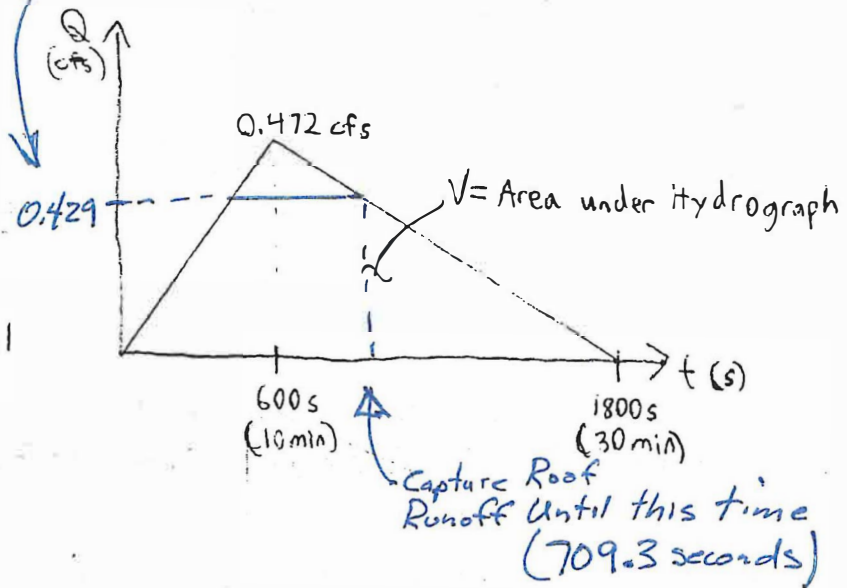 Q
(cfs)
0.472 cfs
0.429
V= Area under Hydrograph
t (s)
600s
(10min)
1800s
(30min)
Capture Roof
Runoff Until this time
(709.3 seconds)